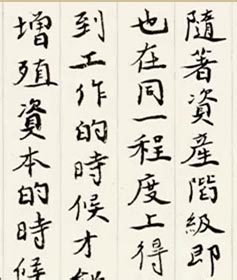 隨著資產階級即
也在同一程度上得
到工作的時候才能
增殖資本的時候